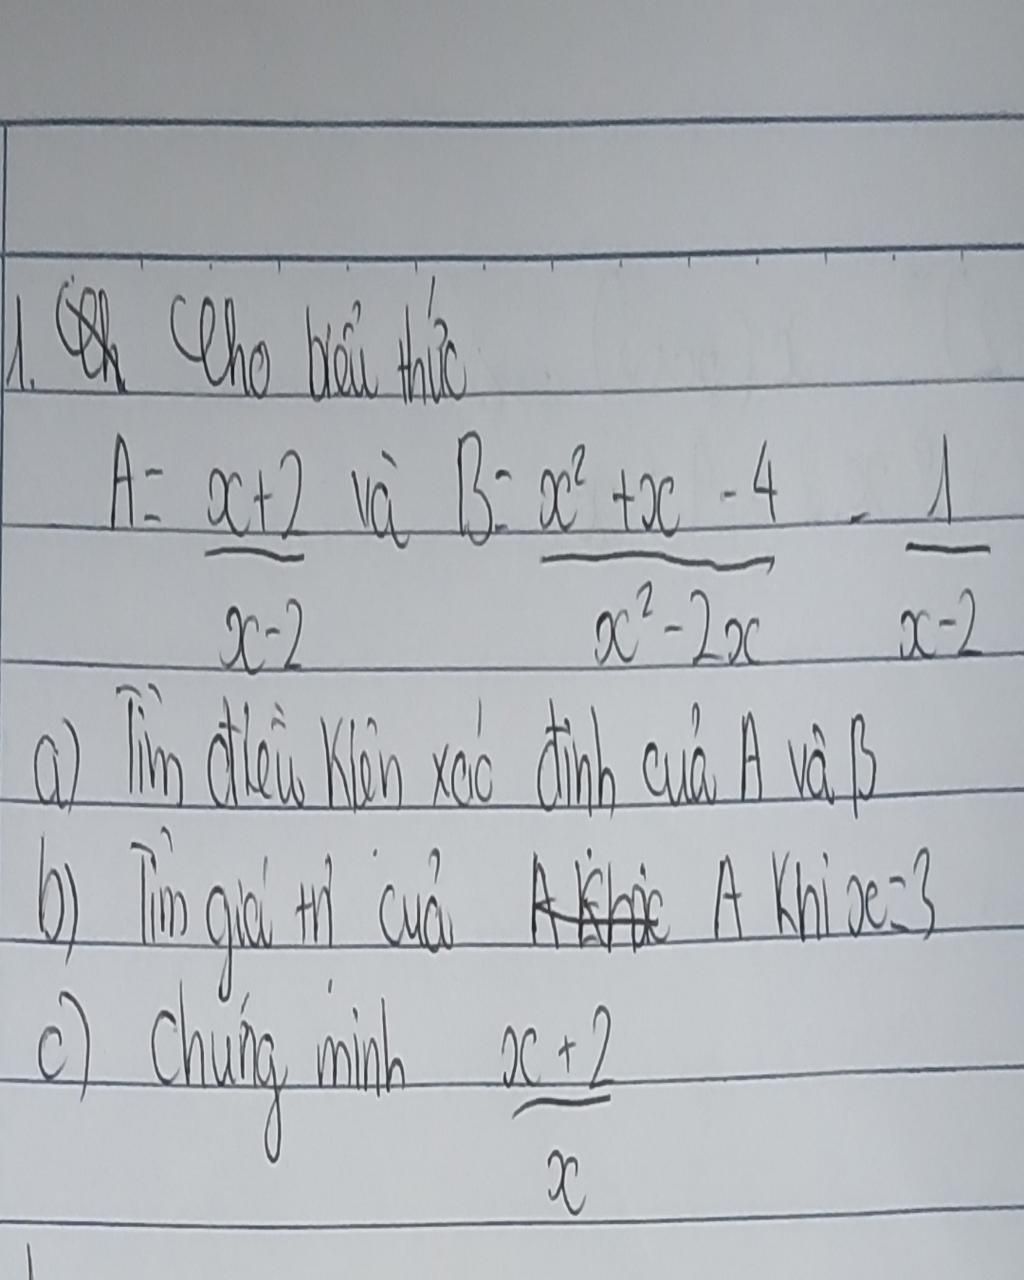 1. Cho biểu thức
A = x+2 / x-2 và B = x² + x - 4 / x² - 2x - 1 / x-2
a) Tìm điều kiện xác định của A và B
b) Tìm giá trị của A Khi x=3
c) Chứng minh x+2 / x